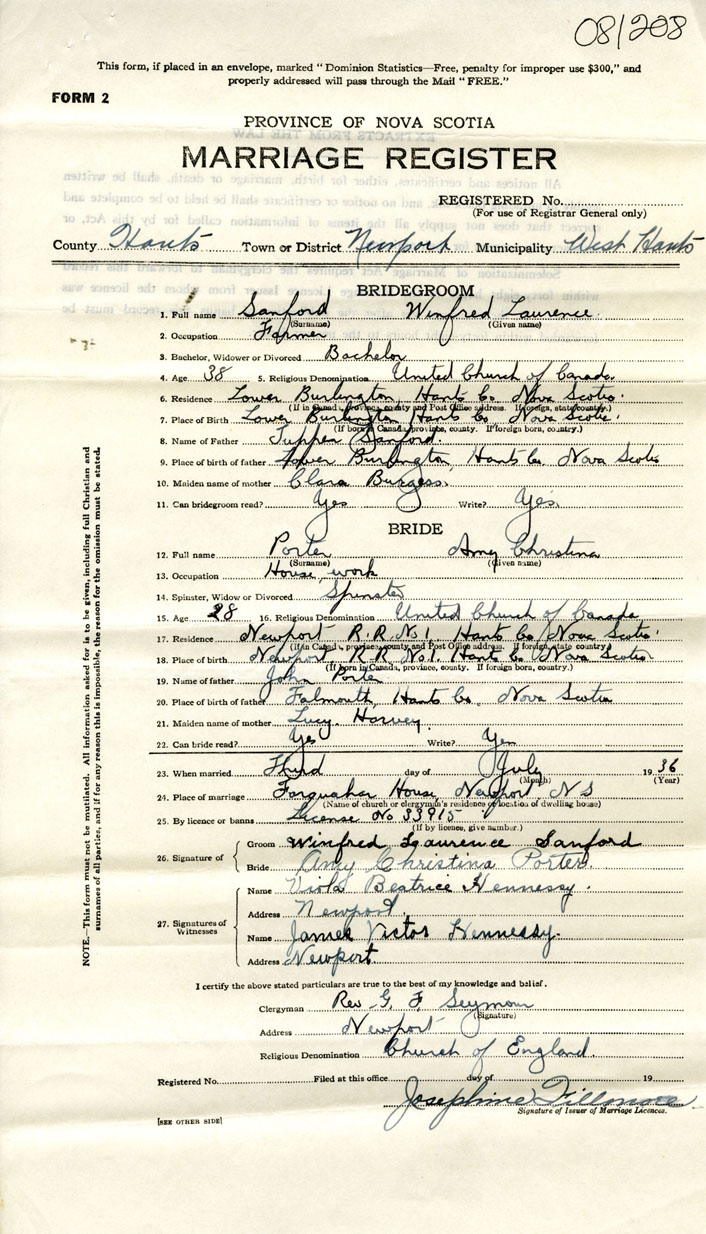 08/208
This form, if placed in an envelope, marked "Dominion Statistics—Free, penalty for improper use $300," and
properly addressed will pass through the Mail "FREE."
FORM 2
PROVINCE OF NOVA SCOTIA
MARRIAGE REGISTER
REGISTERED No.
(For use of Registrar General only)
County Hants Town or District Newport Municipality West Hants
BRIDEGROOM
1. Full name Sanford Winfred Laurence
(Surname) (Given name)
2. Occupation Farmer
3. Bachelor, Widower or Divorced Bachelor
4. Age 38 5. Religious Denomination United Church of Canada
6. Residence Lower Burlington, Hants Co Nova Scotia.
(If in Canada, province, county and Post Office address. If foreign, state country.)
7. Place of Birth Lower Burlington Hants Co. Nova Scotia.
(If born in Canada, province, county. If foreign born, country.)
8. Name of Father Tupper Sanford.
9. Place of birth of father Lower Burlington, Hants Co Nova Scotia
10. Maiden name of mother Clara Burgess.
11. Can bridegroom read? Yes Write? Yes.
BRIDE
12. Full name Porter Amy Christina
(Surname) (Given name)
13. Occupation House work
14. Spinster, Widow or Divorced Spinster
15. Age 28 16. Religious Denomination United Church of Canada
17. Residence Newport R.R. No 1, Hants Co, Nova Scotia.
(If in Canada, province, county and Post Office address. If foreign, state country.)
18. Place of birth Newport, R.R. No. 1. Hants Co Nova Scotia
(If born in Canada, province, county. If foreign born, country.)
19. Name of father John Porter
20. Place of birth of father Falmouth, Hants Co. Nova Scotia
21. Maiden name of mother Lucy. Harvey.
22. Can bride read? Yes Write? Yes
23. When married Third day of July 1936
(Month) (Year)
24. Place of marriage Farquahar House, Newport N S
(Name of church or clergyman's residence or location of dwelling house)
25. By licence or banns License No 33915
(If by licence, give number.)
26. Signature of
Groom Winfred Laurence Sanford
Bride Amy Christina Porter.
27. Signatures of Witnesses
Name Viola Beatrice Hennessy.
Address Newport.
Name James Victor Hennessy.
Address Newport.
I certify the above stated particulars are true to the best of my knowledge and belief.
Clergyman Rev. G. F. Seymour
(Signature)
Address Newport
Religious Denomination Church of England.
Registered No. Filed at this office day of 19
Josephine Fillmore
Signature of Issuer of Marriage Licences.
[SEE OTHER SIDE]
NOTE.—This form must not be mutilated. All information asked for is to be given, including full Christian and
surnames of all parties, and if for any reason this is impossible, the reason for the omission must be stated.